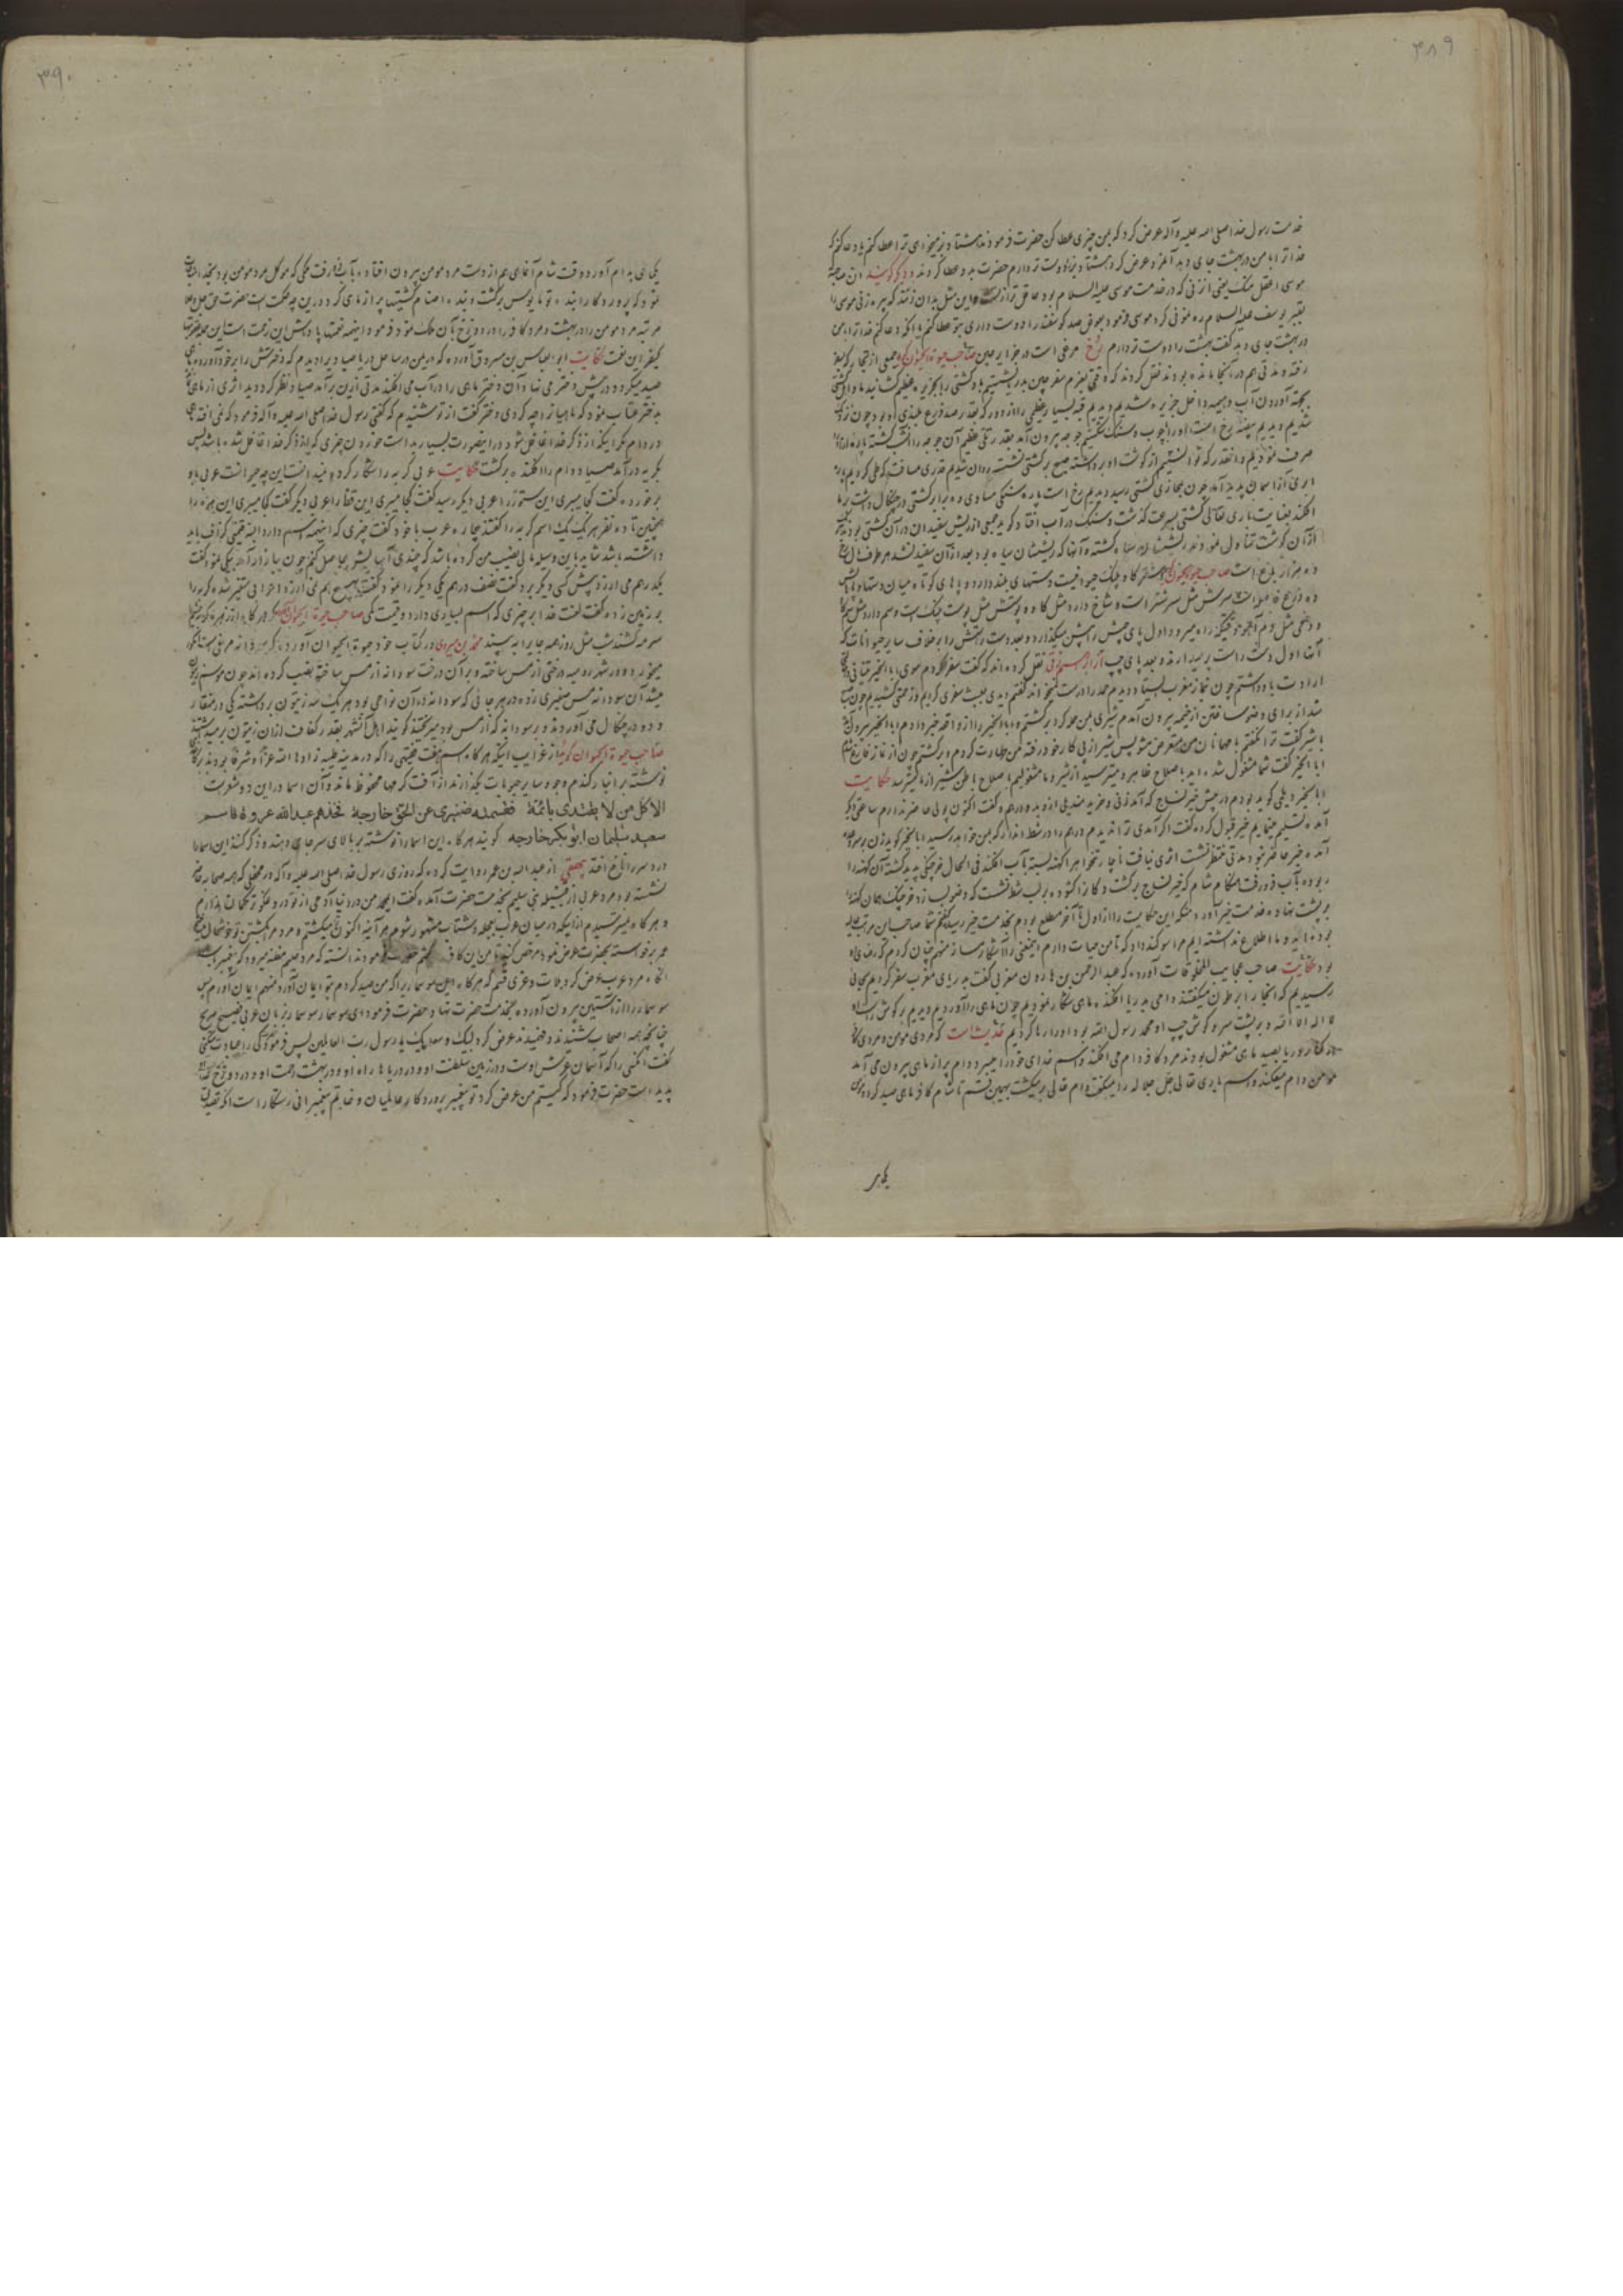 ۳۸۹
خدمت رسول خدا صلی الله علیه و آله عرض کرد که بمن چیزی عطا کن حضرت فرمودند هشتاد بز میخواهی ترا عطا کنم یا دعا کنم که
خدا ترا با من در بهشت جای دهد آنمرد عرض کرد هشتاد بز را دوست تر دارم حضرت بدو عطا کردند و دیگر گویند ان صاحبة
موسی اعقل منک یعنی آن زنی که در خدمت موسی علیه السلام بود عاقل تر از تست و این مثل بدان زدند که پیره زنی موسی را
بقبر یوسف علیه السلام رهنمونی کرد موسی فرمود بعوض صد گوسفند را دوست داری بتو عطا کنم یا آنکه دعا کنم خدا ترا با من
در بهشت جای دهد گفت بهشت را دوست تر دارم رخ مرغی است در جزایر چین صاحب حیوة الحیوان گوید جمعی از تجار که بسفر
رفته و مدتی هم در آنجا مانده بودند نقل کردند که وقتی بعزم سفر چین بدریا نشستیم باد کشتی را بجزیره عظیم کشانید ما و اهل کشتی
بجهة آوردن آب و هیمه داخل جزیره شدیم دیدیم قبه بسیار عظیمی را از دور که بقدر صد ذرع بلندی او بود چون نزدیک
شدیم دیدیم بیضه رخ است او را بچوب و سنگ شکستیم جوجه بیرون آمد بقدر تلی عظیم آن جوجه را کشته پاره
صرف نمودیم و آنقدر که توانستیم از گوشت او برداشته صبح بر کشتی نشسته روان شدیم قدری مسافت که طی کردیم پاره
ابری از آسمان پدید آمد چون بمحاذی کشتی رسید دیدیم رخ است پاره سنگی مساوی و برابر کشتی در چنگال داشت بر ما
افکند بعنایت باری تعالی کشتی بسرعت گذشت و سنگ در آب افتاد گوید جمعی از ریش سفیدان در آن کشتی بودند چون
از آن گوشت تناول نمودند ریششان سیاه گشته و آنها که ریششان سیاه بود بعد از آن سفید نشد
صاحب حیوة الحیوان گوید شتر گاو پلنگ حیوانیست دستهای بلند دارد و پاهای کوتاه میان دستها و پاهایش
ده ذرع فاصله است سرش مثل سر شتر است و شاخ دارد مثل گاو و پوستش مثل پوست پلنگ است و سم دارد مثل سم گاو
و دمی مثل دم آهو و وقتیکه راه میرود اول پای چپش را پیش میگذارد و بعد دست راستش را بر خلاف سایر حیوانات که
آنها اول دست راست بر میدارند و بعد پای چپ نقل کرده اند که گفت سفر کردم سوی ابا الخیر تینانی
ارادت با او داشتم چون نماز مغرب بایستاد دیدیم حمد را درست نمیخواند گفتم دیدی بعبث سفری کردیم و زحمتی کشیدیم چون شب
شد از برای وضو ساختن از خیمه بیرون آمدم شیری بمن حمله کرد برگشتم و ابا الخیر را از واقعه خبر دادم ابا الخیر بیرون آمد
با شیر گفت ترا نگفتم با مهمانان من متعرض مشو پس شیر از پی کار خود رفته من طهارت کردم و برگشتم چون از نماز فارغ شدم
ابا الخیر گفت شما مشغول شده اید باصلاح ظاهر و میترسید از شیر و ما مشغولیم باصلاح باطن شیر از ما میترسد حکایت
ابا الخیر دیلمی گوید بودم در پیش خیر نساج که آمد زنی و خرید مندیلی از او بدو درهم و گفت اکنون پولی حاضر ندارم ساعتی دیگر
آمده تسلیم مینمایم خیر قبول کرده گفت اگر آمدی ترا ندیدم درهم را در شط انداز که بمن خواهد رسید ابا الخیر گوید زن برفت و
آمد خیر حاضر نبود مدتی منتظر نشست اثری نیافت ناچار تنخواه را بکهنه بسته بآب افکند فی الحال خرچنگی پدید گشته آن کهنه را
ربوده بآب فرو رفت هنگام شام که خیر نساج برگشت دکانرا گشوده بر لب شط نشست که وضو بسازد خرچنگ همان کهنه را
بر پشت نهاده خدمت خیر آورد من که این حکایت را از اول تا آخر مطلع بودم بخدمت خیر رسیده گفتم شما صاحب این مرتبه عالیه
بوده اید و ما اطلاع نداشته ایم مرا سوگند داد که تا من حیات دارم اینمعنی را آشکار مساز منهم چنان کردم که رضای او
بود حکایت صاحب عجایب المخلوقات آورده که عبد الرحمن بن هارون مغربی گفت بدریای مغرب سفر کردیم بجائی
رسیدیم که آنجا را برطون میگفتند دامی بدریا افکنده ماهی شکار نمودیم چون ماهی را آوردیم دیدیم بر گوش راست او
لا اله الا الله و بر پشت سر و گوش چپ او محمد رسول الله بود او را رها کردیم حدیث است که مردی مؤمن و مردی کافر
در کنار دریا بصید ماهی مشغول بودند مرد کافر دام می افکند و اسم خدای خود را میبرد دام پر از ماهی بیرون می آمد
مؤمن دام میفکند و اسم باری تعالی جل جلاله را میگفت دام خالی بر میگشت بهمین قسم تا شام کافر ماهی صید کرد و مؤمن
یکماهی
۳۹۰
یکماهی بدام آورد وقت شام آنماهی هم از دست مرد مؤمن بیرون افتاده بآب فرو رفت ملکی که موکل مرد مؤمن بود بخدا مناجات
نمود که پروردگارا بنده تو مأیوس برگشت و بنده اصنام کشتیها پر از ماهی کرد در این چه حکمت است حضرت حق جل و علا
مرتبه مرد مؤمن را در بهشت و مرد کافر را در دوزخ بآن ملک نمود فرمود اینهمه نعمتها پاداش این زحمت است
کیفر این نعمت حکایت ابو العباس بن مسروق آورده که در یمن در ساحل دریا صیادی را دیدم که دخترش را بر خود آورده ماهی
صید میکرد و در پیش دختر می نهاد آن دختر ماهی را در آب می افکند مدتی بر این برآمد صیاد نظر کرد دید اثری از ماهی نیست
بدختر عتاب نمود که ماهیها را چه کردی دختر گفت از تو شنیدم که گفتی رسول خدا صلی الله علیه و آله فرمود که نمی افتد ماهی
در دام مگر اینکه از ذکر خدا غافل شود در اینصورت بسیار بد است خوردن چیزی که از ذکر خدا غافل شده باشد پس
بگریه درآمد صیاد و دام را افکنده برگشت حکایت عربی گربه را شکار کرد و نمیدانست این چه حیوانست عربی باو
برخورده گفت کجا میبری این سنور را عربی دیگر رسید گفت کجا میبری این قط را عربی دیگر گفت کجا میبری این هره را
همچنین تا ده نفر هر یک یک اسم گربه را گفتند بیچاره عرب با خود گفت چیزی که اینهمه اسم دارد البته قیمتی گزاف باید
داشته باشد شاید باین وسیله مالی نصیب من کرده باشد که چندی آسایشی حاصل کنم چون ببازار آمد یکی نمود گفت
یکدرهم می ارزد پیش کسی دیگر برد گفت نصف درهم بیکی دیگر را نمود گفت بهیچ هم نمی ارزد اعرابی متغیر شده گربه را
بر زمین زده گفت لعنت خدا بر چیزی که اسم بسیاری دارد و قیمت کمی صاحب حیوة الحیوان گوید هر گاه از زهره گربه در چشم
سرمه کشند شب مثل روز همه جا را به بیند محمد بن میری در کتاب خود حیوة الحیوان آورده که سودانه مرغی است انگور
میخورد و در شهر رومیه درختی از مس ساخته و بر آن درخت سودانه از مس ساخته نصب کرده اند چون موسم زیتون
میشد آن سودانه مس صفیری زده در هر جائی که سودانه در آن نواحی بود هر یک سه زیتون برداشته یکی در منقار
و دو در چنگال می آوردند و بر سودانه که از مس بود میریختند گویند اهل آنشهر بقدر کفاف از آن زیتون بر میداشتند
صاحب حیوة الحیوان گوید از غرایب اینکه هر گاه اسم هفت فقیهی را که در مدینه طیبه زادها الله عزا و شرفا بودند بر کاغذی
نوشته بر انبار گندم و جو و سایر حبوبات بگذارند از آفت کرمها محفوظ ماند و آن اسما در این دو شعر است
الا کل من لا یقتدی بائمة فقسمته ضیزی عن الحق خارجة فخذهم عبید الله عروة قاسم
سعید سلیمان ابو بکر خارجه گویند هر گاه این اسما را نوشته بر بالای سر جای دهند و ذکر کنند این اسما را
درد سر را نافع افتد بیهقی از عبد الله بن عمر روایت کرده که روزی رسول خدا صلی الله علیه و آله در محفلی که همه صحابه
نشسته بودند مرد عربی از قبیله بنی سلیم بخدمت حضرت آمده گفت ایمحمد من در دنیا آدمی از تو دروغگوتر گمان ندارم
و هر گاه نمیترسیدم از اینکه در میان عرب بعجله و شتاب مشهور شوم هر آینه اکنون ترا میکشتم و مردم از کشتن تو خوشحال میشدند
عمر برخواسته بحضرت عرض نمود مرخص کنید تا من این کافر را بکشم حضرت فرمودند ندانسته که مرد حلیم مظنه میرود که پیغمبر باشد
آنگاه مرد عرب عرض کرد بلات و عزی قسم که هر گاه این سوسمار را که من صید کردم بتو ایمان آورد منهم ایمان آورم پس
سوسمار را از آستین بیرون آورده بخدمت حضرت نهاد حضرت فرمود ای سوسمار سوسمار بزبان عربی فصیح صریح
چنانچه همه اصحاب شنیدند و فهمیدند عرض کرد لبیک و سعدیک یا رسول رب العالمین پس فرمود کرا عبادت میکنی
گفت آنکسی را که آسمان عرش اوست و در زمین سلطنت او و در دریاها راه او و در بهشت رحمت او و در دوزخ عذاب او
پدید است حضرت فرمود که کیستم من عرض کرد تو پیغمبر پروردگار عالمیان و خاتم پیغمبرانی رستگار است آنکه تصدیق